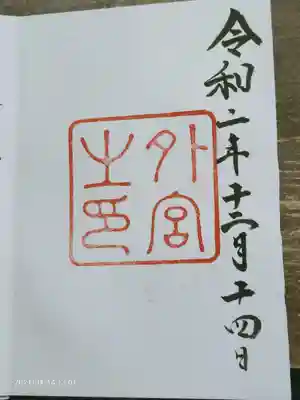 令和二年十二月十四日
外宮
之印